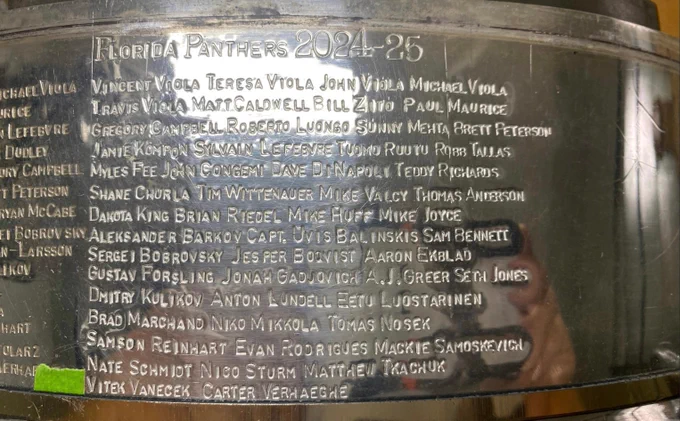 FLORIDA PANTHERS 2024-25
VINCENT VIOLA TERESA VIOLA JOHN VIOLA MICHAEL VIOLA
TRAVIS VIOLA MATT CALDWELL BILL ZITO PAUL MAURICE
GREGORY CAMPBELL ROBERTO LUONGO SUNNY MEHTA BRETT PETERSON
JAMIE KOMPON SYLVAIN LEFEBVRE TUOMO RUUTU ROBB TALLAS
MYLES FEE JOHN GONGEMI DAVE DI NAPOLI TEDDY RICHARDS
SHANE CHURLA TIM WITTENAUER MIKE VALCY THOMAS ANDERSON
DAKOTA KING BRIAN RIEDEL MIKE HUFF MIKE JOYCE
ALEKSANDER BARKOV CAPT. UVIS BALINSKIS SAM BENNETT
SERGEI BOBROVSKY JESPER BOQVIST AARON EKBLAD
GUSTAV FORSLING JONAH GADJOVICH A.J. GREER SETH JONES
DMITRY KULIKOV ANTON LUNDELL EETU LUOSTARINEN
BRAD MARCHAND NIKO MIKKOLA TOMAS NOSEK
SAMSON REINHART EVAN RODRIGUES MACKIE SAMOSKEVICH
NATE SCHMIDT NICO STURM MATTHEW TKACHUK
VITEK VANECEK CARTER VERHAEGHE
MICHAEL VIOLA
LEFEBVRE
DUDLEY
CAMPBELL
PETERSON
RYAN MCCABE
BOBROVSKY
-LARSSON